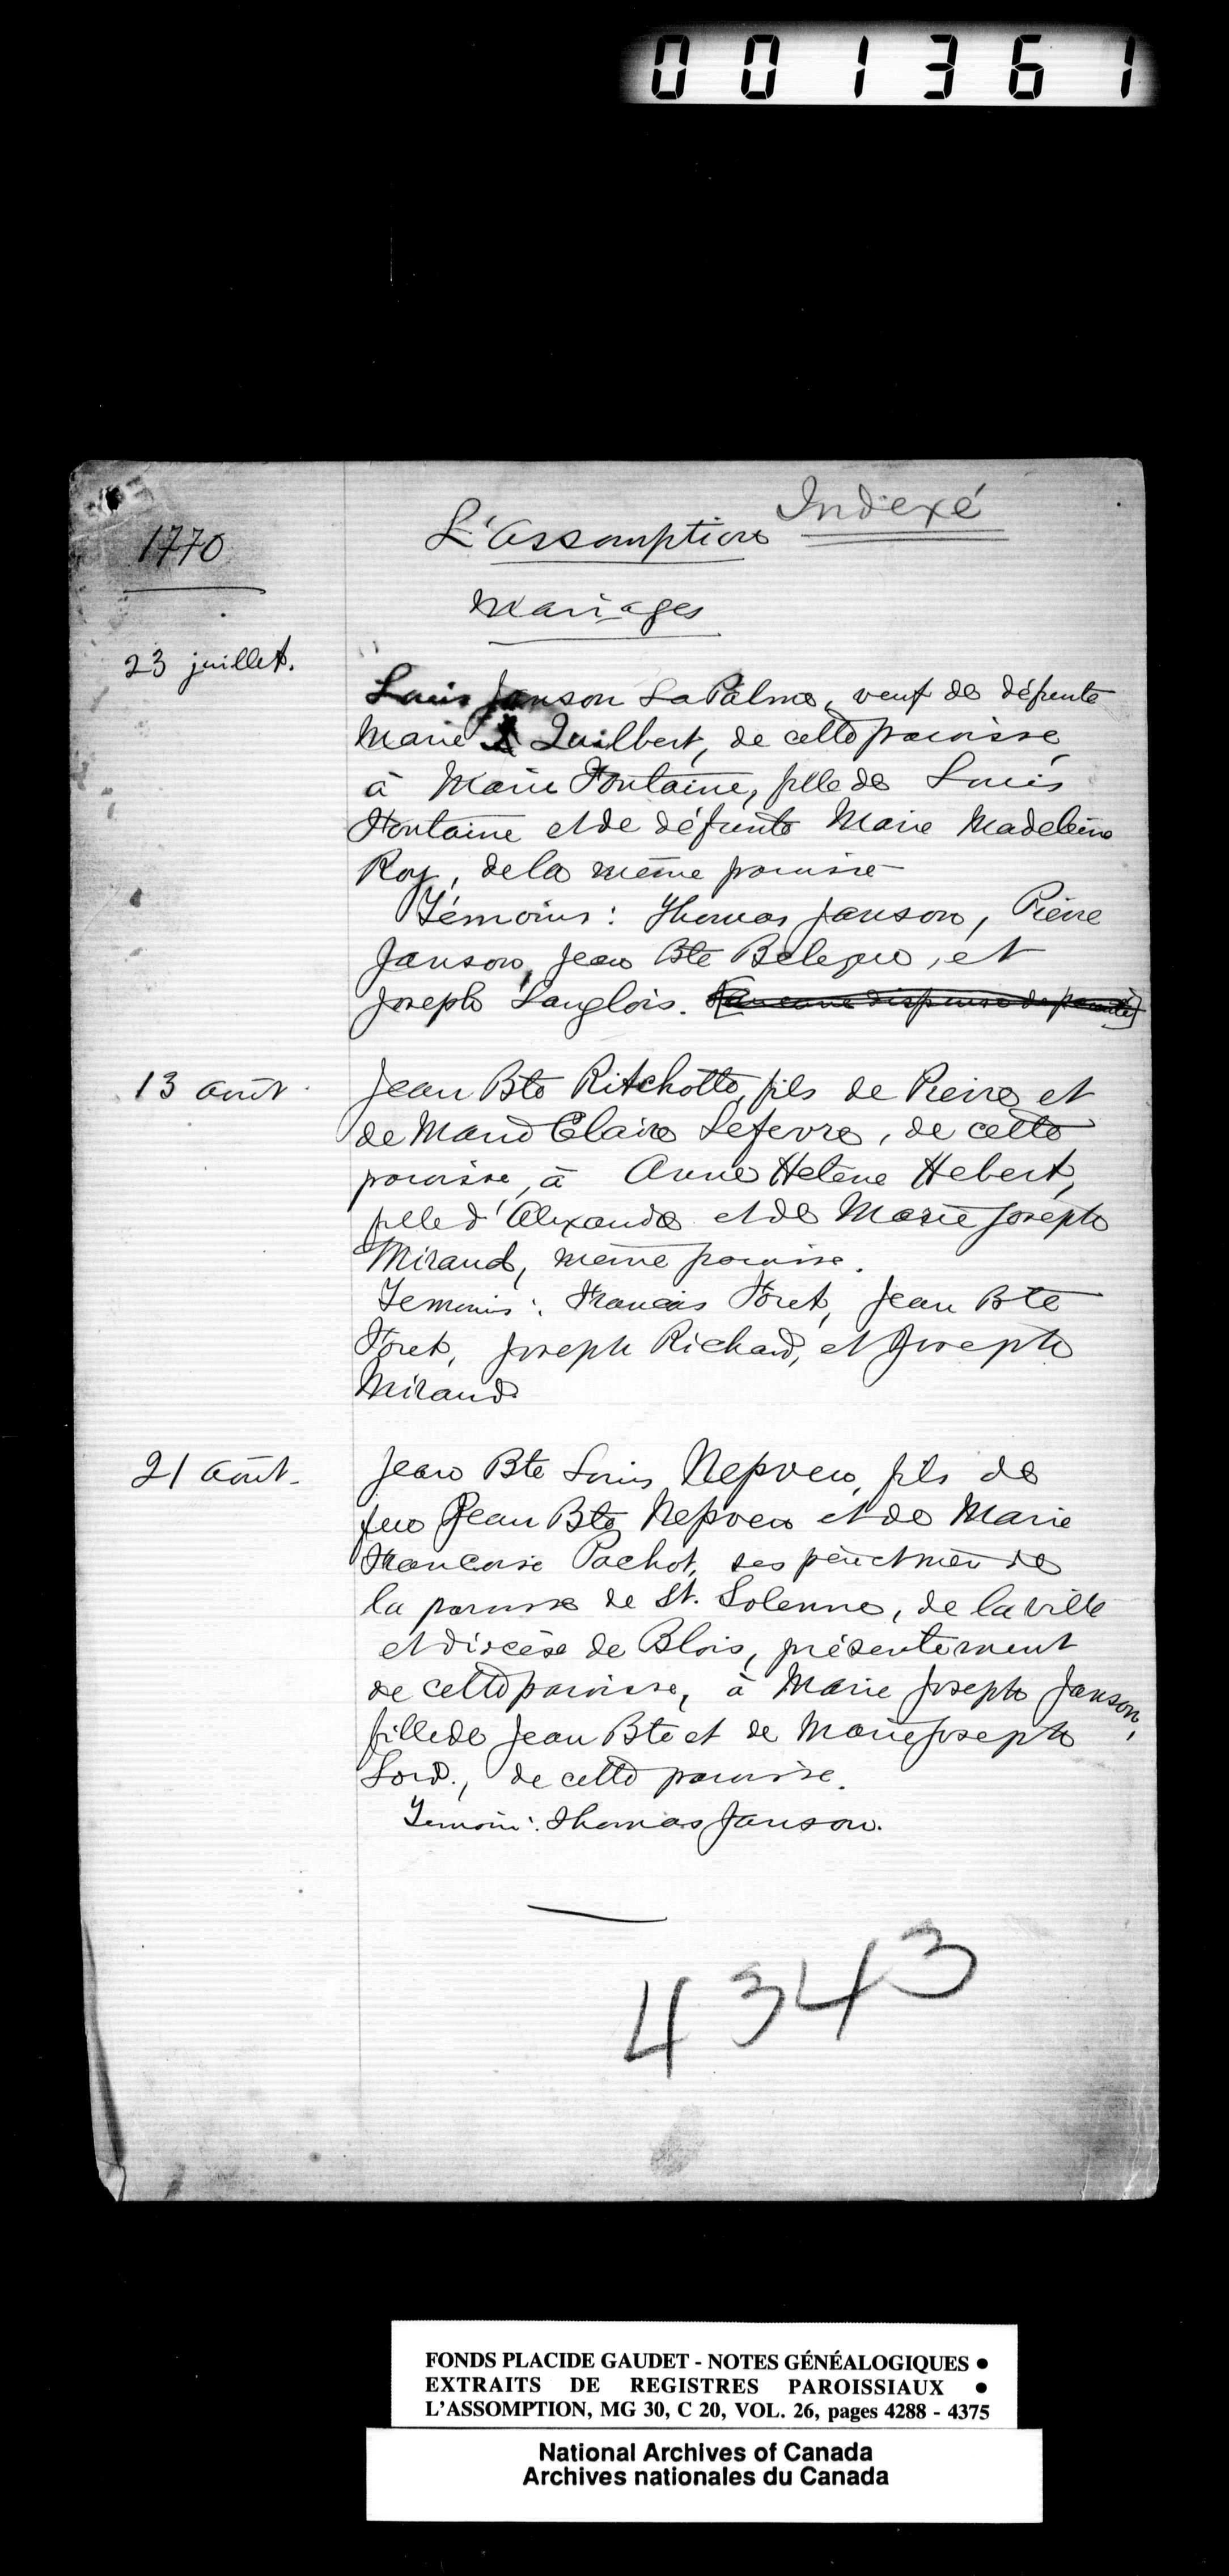 001361
Indexé
1770
L'Assomption
Mariages
23 juillet.
Louis Janson LaPalme, veuf de défunte
Marie Quilbert, de cette paroisse
à Marie Fontaine, fille de Louis
Fontaine et de défunte Marie Madeleine
Roy, de la même paroisse
Témoins : Thomas Janson, Pierre
Janson, Jean Bte Belegue, et
Joseph Langlois. [aucune dispense de parenté]
13 août
Jean Bte Ritchotte, fils de Pierre et
de Marie Claire Lefevre, de cette
paroisse, à Anne Helène Hebert,
fille d'Alexandre et de Marie Joseph
Mirand, même paroisse.
Temoins : Francois Foret, Jean Bte
Foret, Joseph Richard, et Joseph
Mirand
21 août.
Jean Bte Louis Nepveu, fils de
feu Jean Bte Nepveu et de Marie
Francoise Pachot, ses père et mère de
la paroisse de St. Solenne, de la ville
et diocèse de Blois, présentement
de cette paroisse, à Marie Joseph Janson,
fille de Jean Bte et de Marie Joseph
Lord., de cette paroisse.
Temoin : Thomas Janson.
4343
FONDS PLACIDE GAUDET - NOTES GÉNÉALOGIQUES •
EXTRAITS DE REGISTRES PAROISSIAUX •
L'ASSOMPTION, MG 30, C 20, VOL. 26, pages 4288 - 4375
National Archives of Canada
Archives nationales du Canada